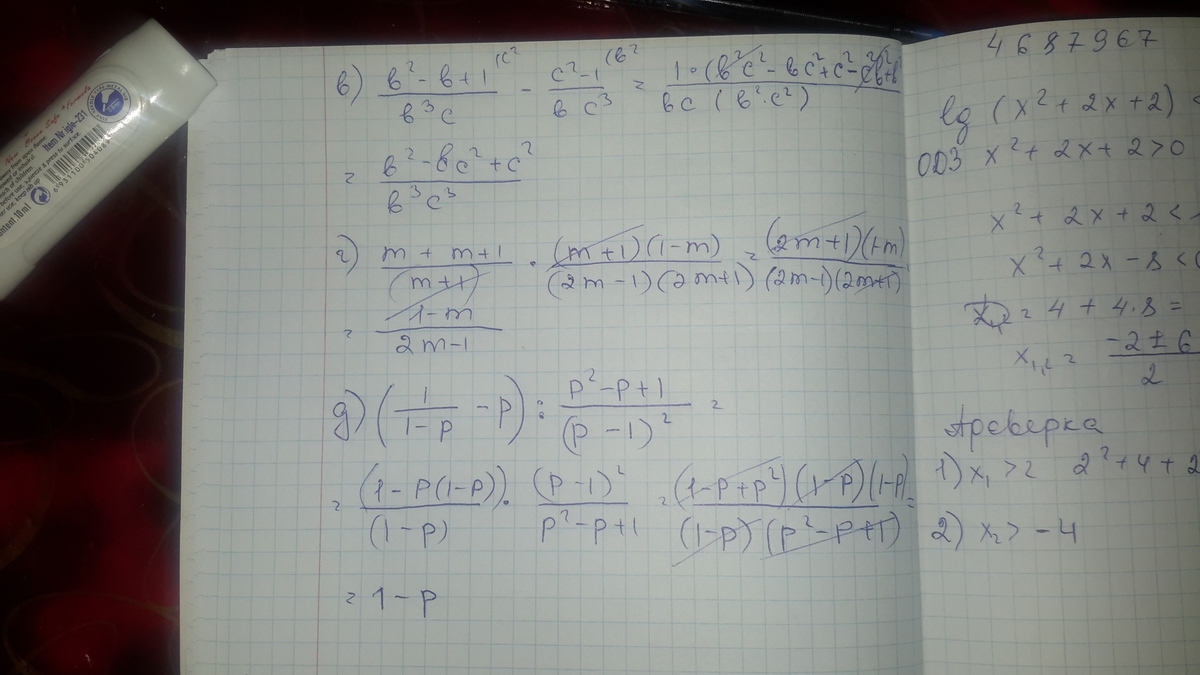 в) (b² - b + 1)/(b³c) (c² - (c² - 1)/(bc³) (b² = 1·(b²c² - bc² + c² - c²b² + b²)/(bc (b²·c²))
= (b² - bc² + c²)/(b³c³)
г) (m + m + 1)/(m+1) · (m+1)(1-m)/((2m-1)(2m+1)) = (2m+1)(1-m)/((2m-1)(2m+1))
= (1-m)/(2m-1)
д) (1/(1-p) - p) : (p² - p + 1)/(p - 1)² =
= (1 - p(1-p))/(1-p) · (p-1)²/(p² - p + 1) = (1-p+p²)(1-p)(1-p)/((1-p)(p²-p+1)) =
= 1 - p
4687967
lg (x² + 2x + 2) <
ОДЗ x² + 2x + 2 > 0
x² + 2x + 2 <
x² + 2x - 8 <
= 4 + 4·8 =
x₁,₂ = (-2 ± 6)/2
Проверка
1) x₁ > 2 2² + 4 + 2
2) x₂ > -4
Item Nr: iglü-231
6931100504084
Content 10ml